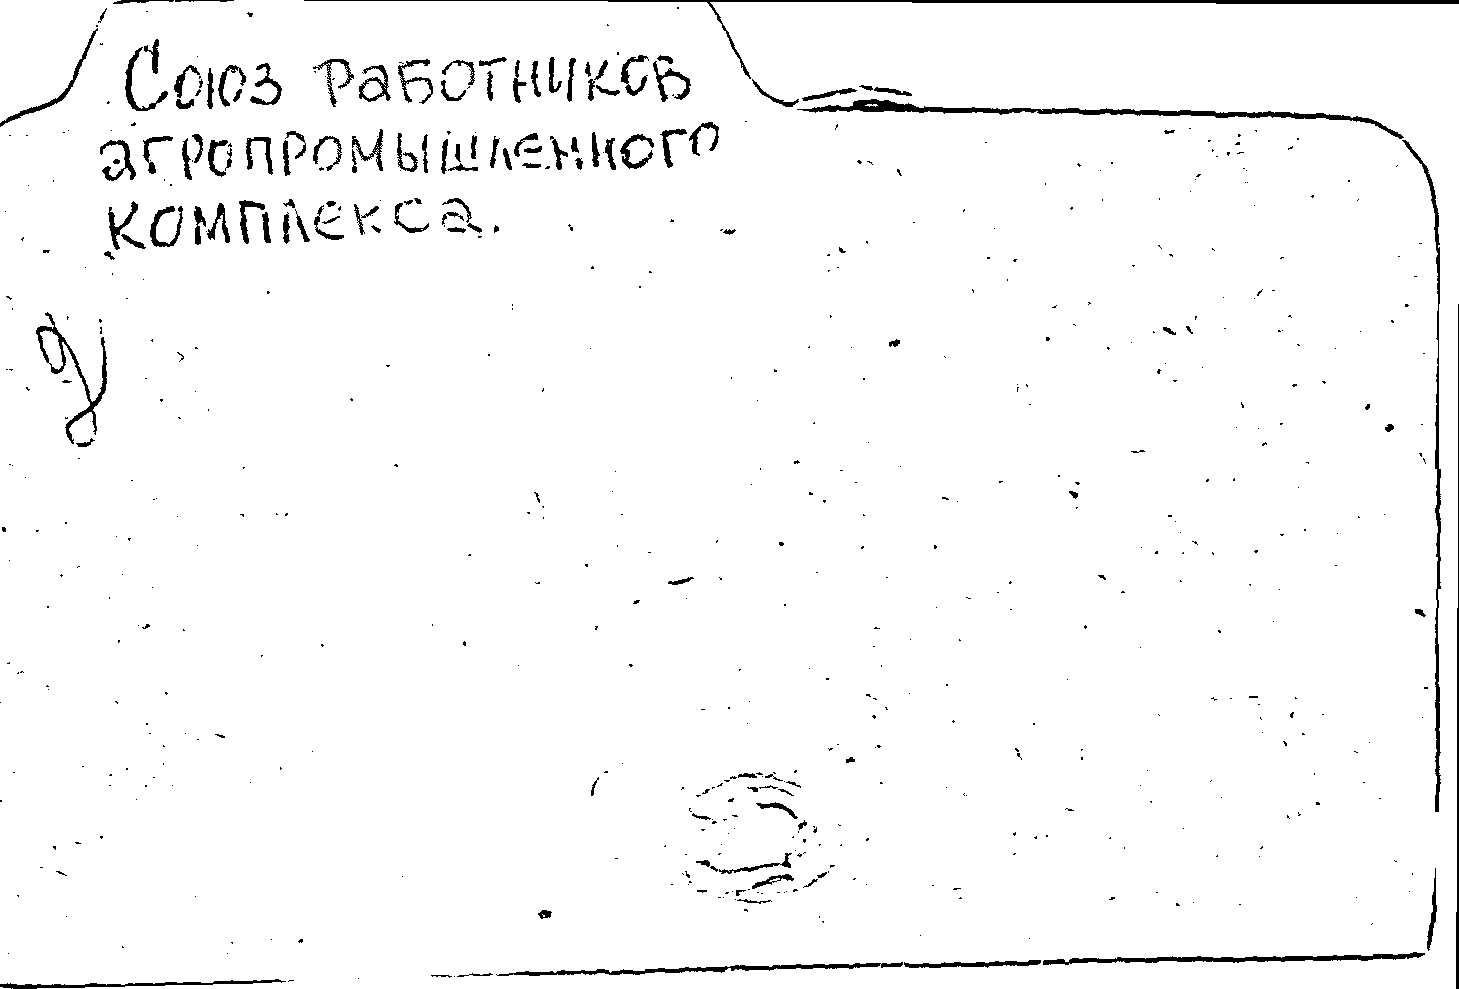 Союз работников
агропромышленного
комплекса.